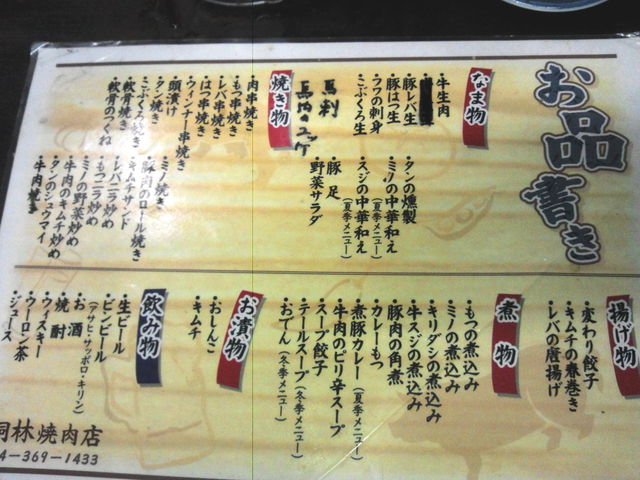 お品書き
なま物
・牛生肉
・豚レバ生
・豚はつ生
・フワの刺身
・こぶくろ生
馬刺
馬肉のユッケ
・タンの燻製
・ミノの中華和え
(夏季メニュー)
・スジの中華和え
(夏季メニュー)
・豚足
・野菜サラダ
焼き物
・肉串焼き
・もつ串焼き
・レバ串焼き
・はつ串焼き
・ウィンナー串焼き
・頭漬け
・タン焼き
・こぶくろ焼き
・軟骨焼き
・軟骨のつくね
・ミノ焼き
・豚肉のロール焼き
・キムチサンド
・レバニラ炒め
・もつニラ炒め
・ミノの野菜炒め
・牛肉のキムチ炒め
・タンのシュウマイ
・牛肉焼き
揚げ物
・変わり餃子
・キムチの春巻き
・レバの唐揚げ
煮物
・もつの煮込み
・ミノの煮込み
・キリダシの煮込み
・牛スジの煮込み
・豚肉の角煮
・カレーもつ
・煮豚カレー(夏季メニュー)
・牛肉のピリ辛スープ
・スープ餃子
・テールスープ(冬季メニュー)
・おでん(冬季メニュー)
お漬物
・おしんこ
・キムチ
飲み物
・生ビール
・ビンビール
(アサヒ・サッポロ・キリン)
・お酒
・焼酎
・ウィスキー
・ウーロン茶
・ジュース
林焼肉店
4-369-1433